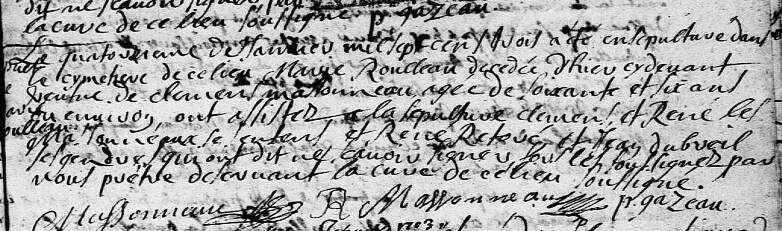 la cure de ce lieu soussigné p. gazeau
Le quatorzieme de Janvier mil sept cens trois a été ensepulturé dans
le cymetiere de ce lieu Marie Roulleau decedée d'hier cy devant
veufve de clemens massonneau agée de soixante et six ans
ou environ, ont assistez a la sepulture clemens et René les
Massonneaux ses enfens et René Retove et Jean dubreil
ses gendres qui ont dit ne sçavoir signer les soussignez par
nous prêtre deservant la cure de ce lieu soussigné.
C Massonneau R Massonneau p. gazeau.